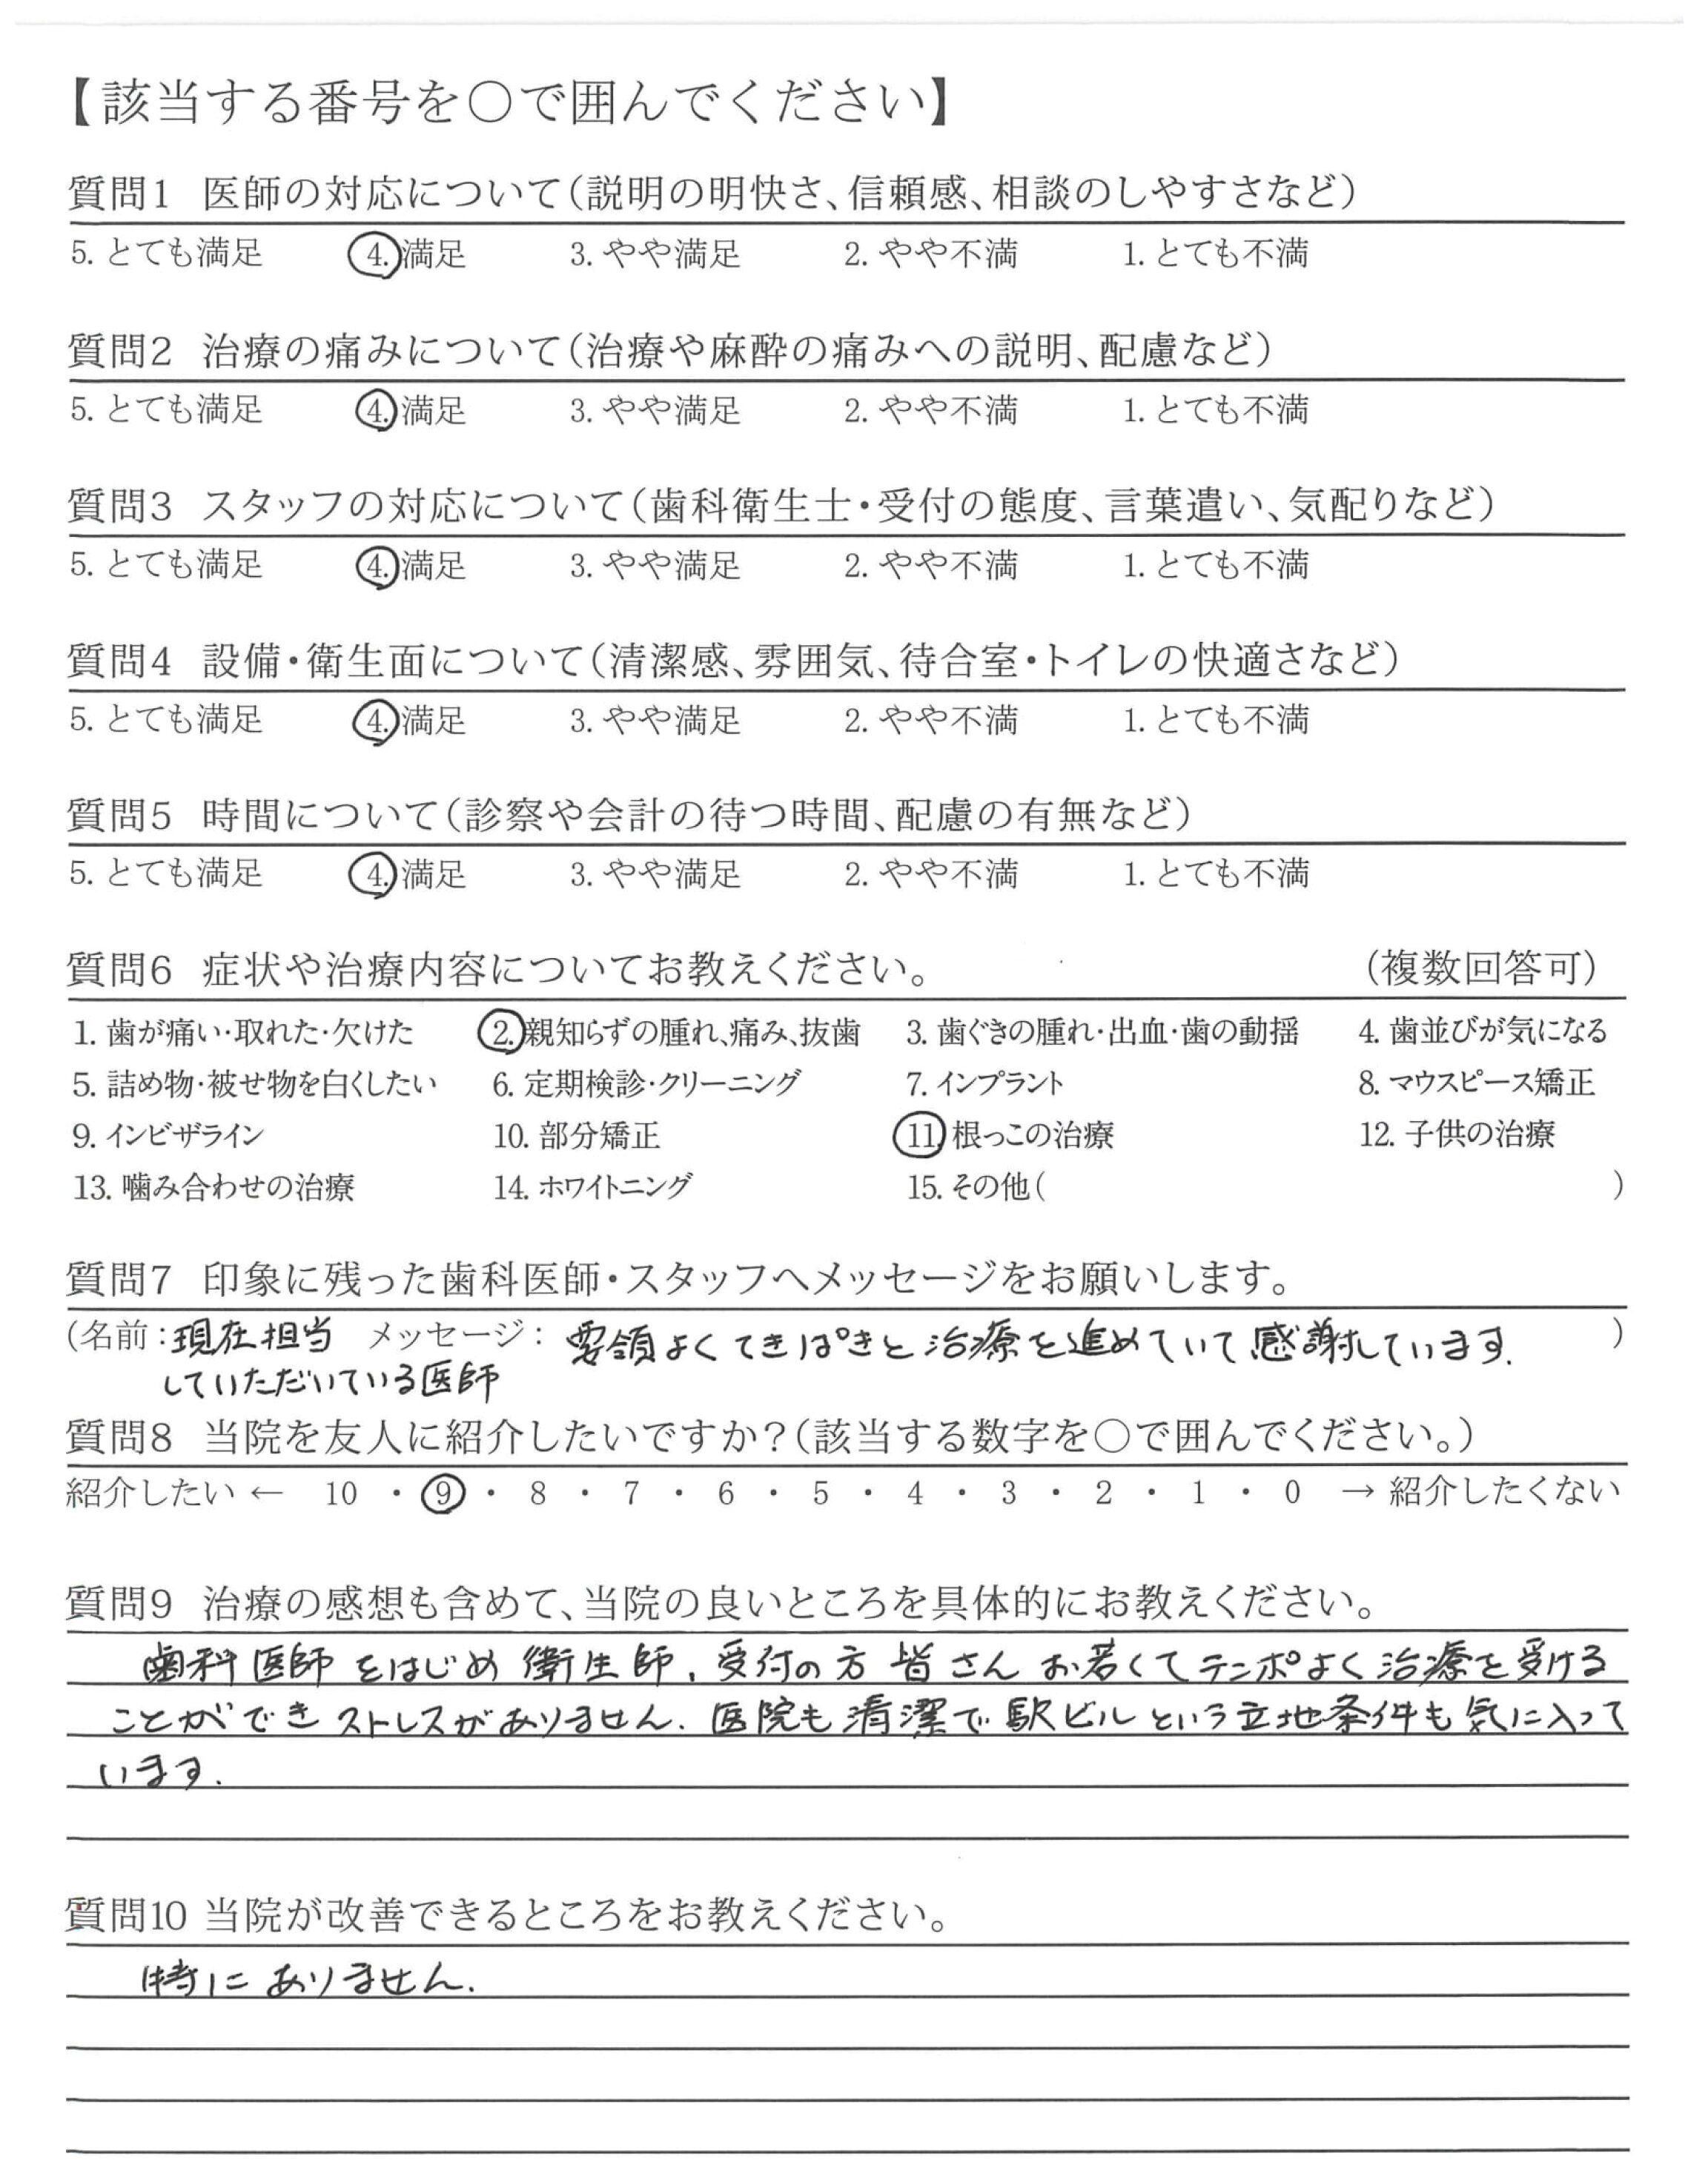 【該当する番号を○で囲んでください】
質問1 医師の対応について(説明の明快さ、信頼感、相談のしやすさなど)
5. とても満足 4. 満足 3. やや満足 2. やや不満 1. とても不満
質問2 治療の痛みについて(治療や麻酔の痛みへの説明、配慮など)
5. とても満足 4. 満足 3. やや満足 2. やや不満 1. とても不満
質問3 スタッフの対応について(歯科衛生士・受付の態度、言葉遣い、気配りなど)
5. とても満足 4. 満足 3. やや満足 2. やや不満 1. とても不満
質問4 設備・衛生面について(清潔感、雰囲気、待合室・トイレの快適さなど)
5. とても満足 4. 満足 3. やや満足 2. やや不満 1. とても不満
質問5 時間について(診察や会計の待つ時間、配慮の有無など)
5. とても満足 4. 満足 3. やや満足 2. やや不満 1. とても不満
質問6 症状や治療内容についてお教えください。 (複数回答可)
1. 歯が痛い・取れた・欠けた 2. 親知らずの腫れ、痛み、抜歯 3. 歯ぐきの腫れ・出血・歯の動揺 4. 歯並びが気になる
5. 詰め物・被せ物を白くしたい 6. 定期検診・クリーニング 7. インプラント 8. マウスピース矯正
9. インビザライン 10. 部分矯正 11. 根っこの治療 12. 子供の治療
13. 噛み合わせの治療 14. ホワイトニング 15. その他( )
質問7 印象に残った歯科医師・スタッフへメッセージをお願いします。
(名前：現在担当 メッセージ：要領よくてきぱきと治療を進めていて感謝しています. )
していただいている医師
質問8 当院を友人に紹介したいですか？(該当する数字を○で囲んでください。)
紹介したい ← 10 ・ 9 ・ 8 ・ 7 ・ 6 ・ 5 ・ 4 ・ 3 ・ 2 ・ 1 ・ 0 → 紹介したくない
質問9 治療の感想も含めて、当院の良いところを具体的にお教えください。
歯科医師をはじめ衛生師、受付の方皆さんお若くてテンポよく治療を受ける
ことができストレスがありません. 医院も清潔で駅ビルという立地条件も気に入って
います.
質問10 当院が改善できるところをお教えください。
特にありません.